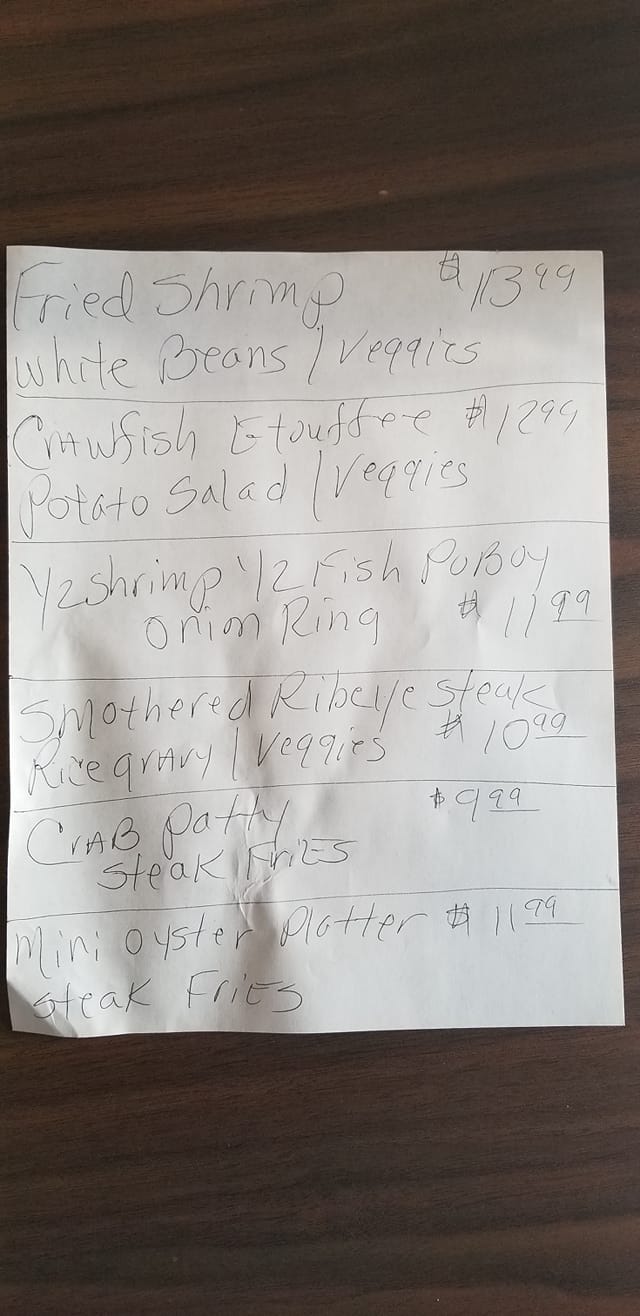 Fried Shrimp $13.99
White Beans / Veggies
Crawfish Etouffee $12.99
Potato Salad / Veggies
1/2 Shrimp 1/2 Fish PoBoy
Onion Ring $11.99
Smothered Ribeye Steak
Rice gravy / Veggies $10.99
Crab Patty $9.99
Steak Fries
Mini Oyster Platter $11.99
Steak Fries